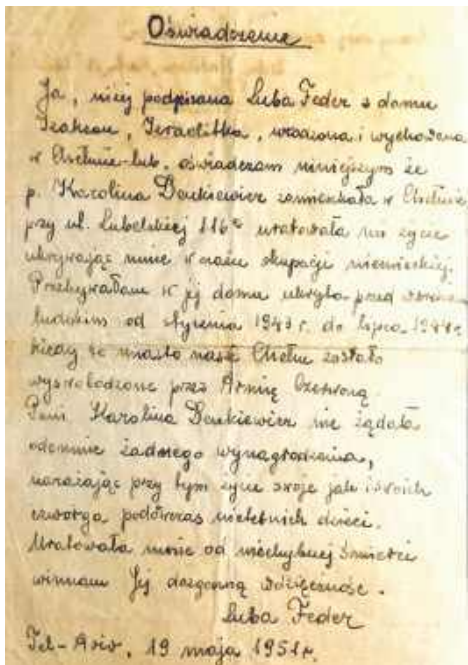 Oświadczenie
Ja, niżej podpisana Luba Feder z domu
Izakson, Izraelitka, urodzona i wychowana
w Chełmie-lub. oświadczam niniejszym że
p. Karolina Daukiewicz zamieszkała w Chełmie
przy ul. Lubelskiej 116 uratowała mi życie
ukrywając mnie w czasie okupacji niemieckiej.
Przebywałam w jej domu ukryta przed okiem
ludzkim od stycznia 1943 r. do lipca 1944 r.
kiedy to miasto nasze Chełm zostało
wyswobodzone przez Armię Czerwoną.
Pani Karolina Daukiewicz nie żądała
odemnie żadnego wynagrodzenia,
narażając przy tym życie swoje jak i swoich
czworga podówczas nieletnich dzieci.
Uratowała mnie od niechybnej śmierci
winnam Jej dozgonną wdzięczność.
Luba Feder
Tel-Aviv, 19 maja 1951 r.